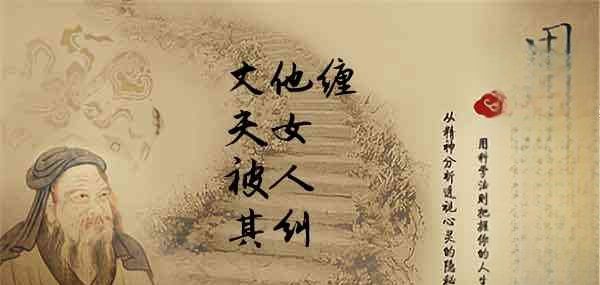 丈夫被其
他女人纠
缠
用科学法则把握你的人生
从精神分析透视心灵的隐秘